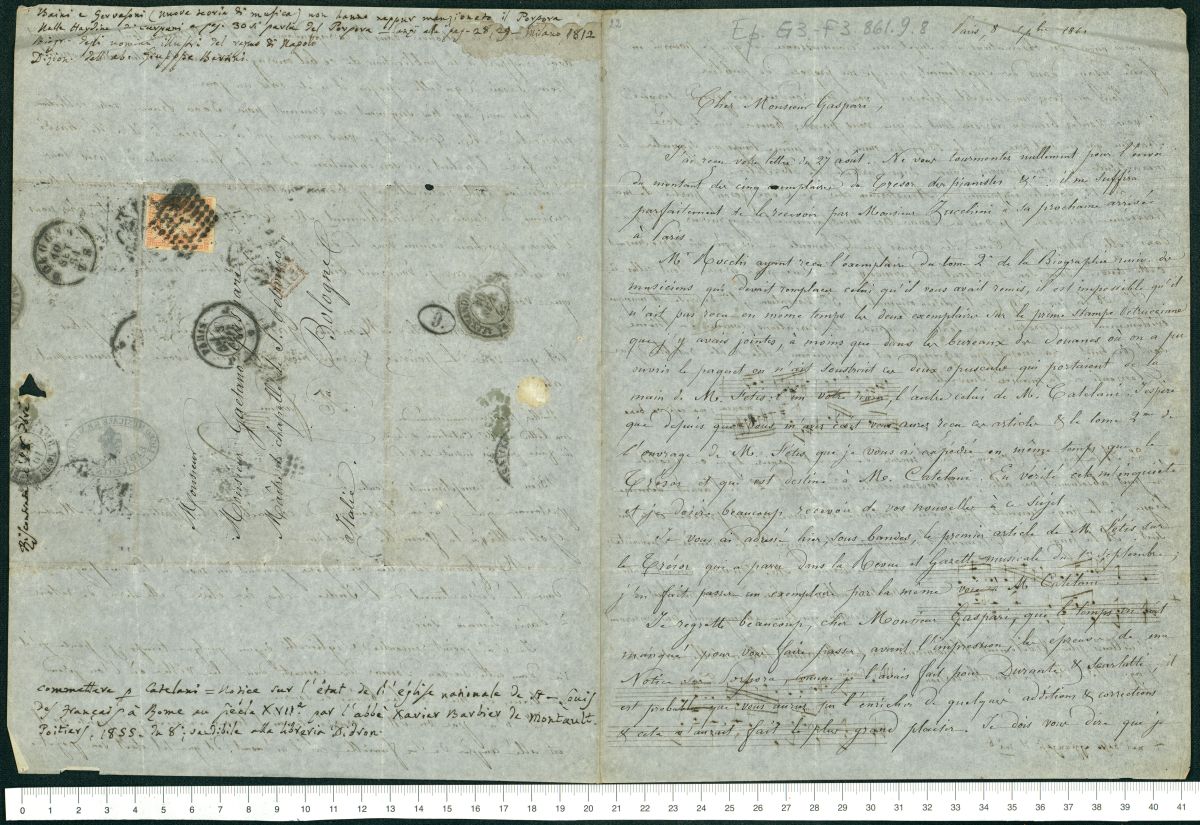 Baini e Gervasoni (nuova teoria di musica) non hanno neppur menzionato il Porpora
Nelle Haydine Carpani a pag. 30 si parla del Porpora — anzi alle pag. 28, 29 — Milano 1812
Biogr. degli uomini illustri del regno di Napoli
Dizion. dell'ab. Giuseppe Bertini.
BOLOGNA
PARIS
Monsieur
Monsieur Gaetano Gaspari
Maître de chapelle à S. Petronio
à Bologne
Italie.
commettere p Catelani = Notice sur l'état de l'église nationale de St Louis
des Français à Rome au siècle XVIIe par l'abbé Xavier Barbier de Montault
Poitiers, 1855. in 8°. vendibile alla libreria Didron.
22
Ep. G3-F3 861.9.8
Paris 8 Septbre 1861
Cher Monsieur Gaspari,
J'ai reçu votre lettre du 27 août. Ne vous tourmentez nullement pour l'envoi
du montant des cinq exemplaires du Trésor des pianistes &a: il me suffira
parfaitement de le recevoir par Monsieur Zucchini à sa prochaine arrivée
à Paris.
Mr Rocchi ayant reçu l'exemplaire du tome 2e de la Biographie univ. des
musiciens qui devait remplacer celui qu'il vous avait remis, il est impossible qu'il
n'ait pas reçu en même temps les deux exemplaires sur les prime stampe Petrucciane
que j'y avais jointes, à moins que dans les bureaux de Douanes où on a pu
ouvrir le paquet on n'ait soustrait ces deux opuscules qui portaient de la
main de M. Fétis l'un votre nom l'autre celui de M. Catelani. J'espère
que depuis que vous m'avez écrit vous aurez reçu ces articles & le tome 2me de
l'ouvrage de M. Fétis que je vous ai expédié en même temps que le
Trésor et qui est destiné à M. Catelani. En vérité cela m'inquiète
et je désire beaucoup recevoir de vos nouvelles à ce sujet.
Je vous ai adressé hier, sous bandes, le premier article de M. Fétis sur
le Trésor qui a paru dans la Revue et Gazette musicale du 1er Septembre;
j'en fait passer un exemplaire par la même voie à M. Catelani.
Je regrette beaucoup, cher Monsieur Gaspari, que le temps m'ait
manqué pour vous faire passer, avant l'impression, les épreuves de ma
Notice sur Porpora, comme je l'avais fait pour Durante & Scarlatti; il
est probable que vous auriez pu l'enrichir de quelques additions & corrections
& cela m'aurait fait le plus grand plaisir. Je dois vous dire que je
0 1 2 3 4 5 6 7 8 9 10 11 12 13 14 15 16 17 18 19 20 21 22 23 24 25 26 27 28 29 30 31 32 33 34 35 36 37 38 39 40 41